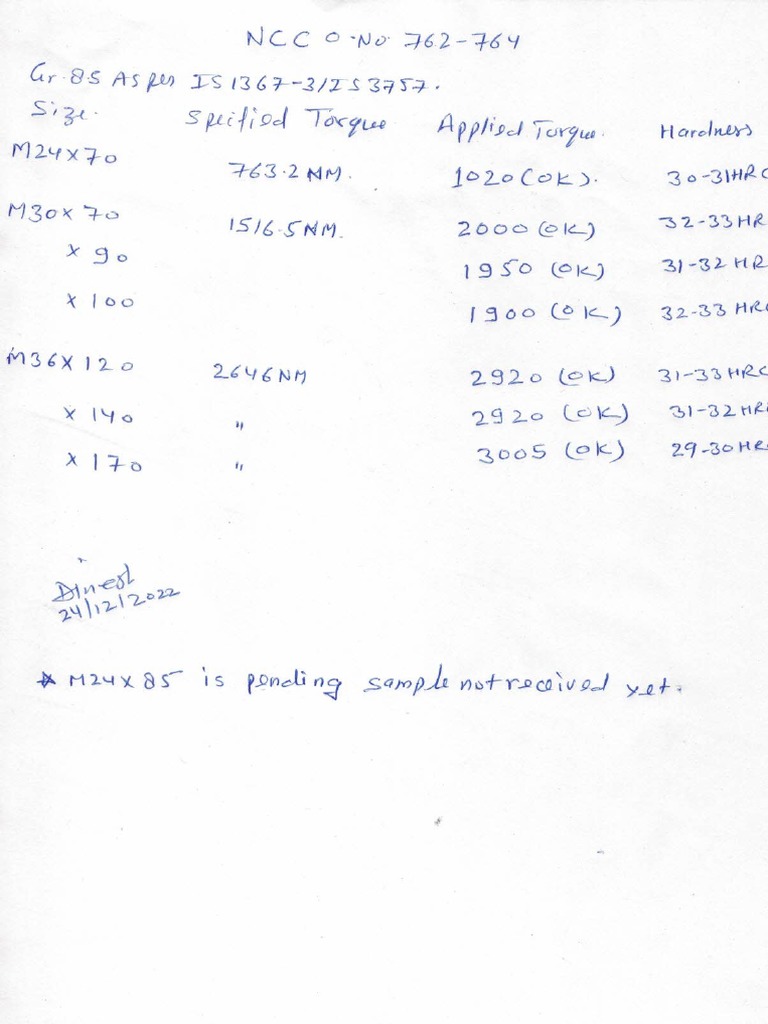 NCC O.No. 762-764
Gr.8S As per IS 1367-3/IS 3757.
Size. Specified Torque Applied Torque. Hardness
M24X70 763.2 NM. 1020 (OK). 30-31HRC
M30X70 1516.5NM. 2000 (OK) 32-33HR
X 90 1950 (OK) 31-32 HR
X 100 1900 (OK) 32-33 HR
M36X120 2646NM 2920 (OK) 31-33HRC
X 140 " 2920 (OK) 31-32HR
X 170 " 3005 (OK) 29-30HR
Dinesh
24/12/2022
* M24X85 is pending sample not received yet.